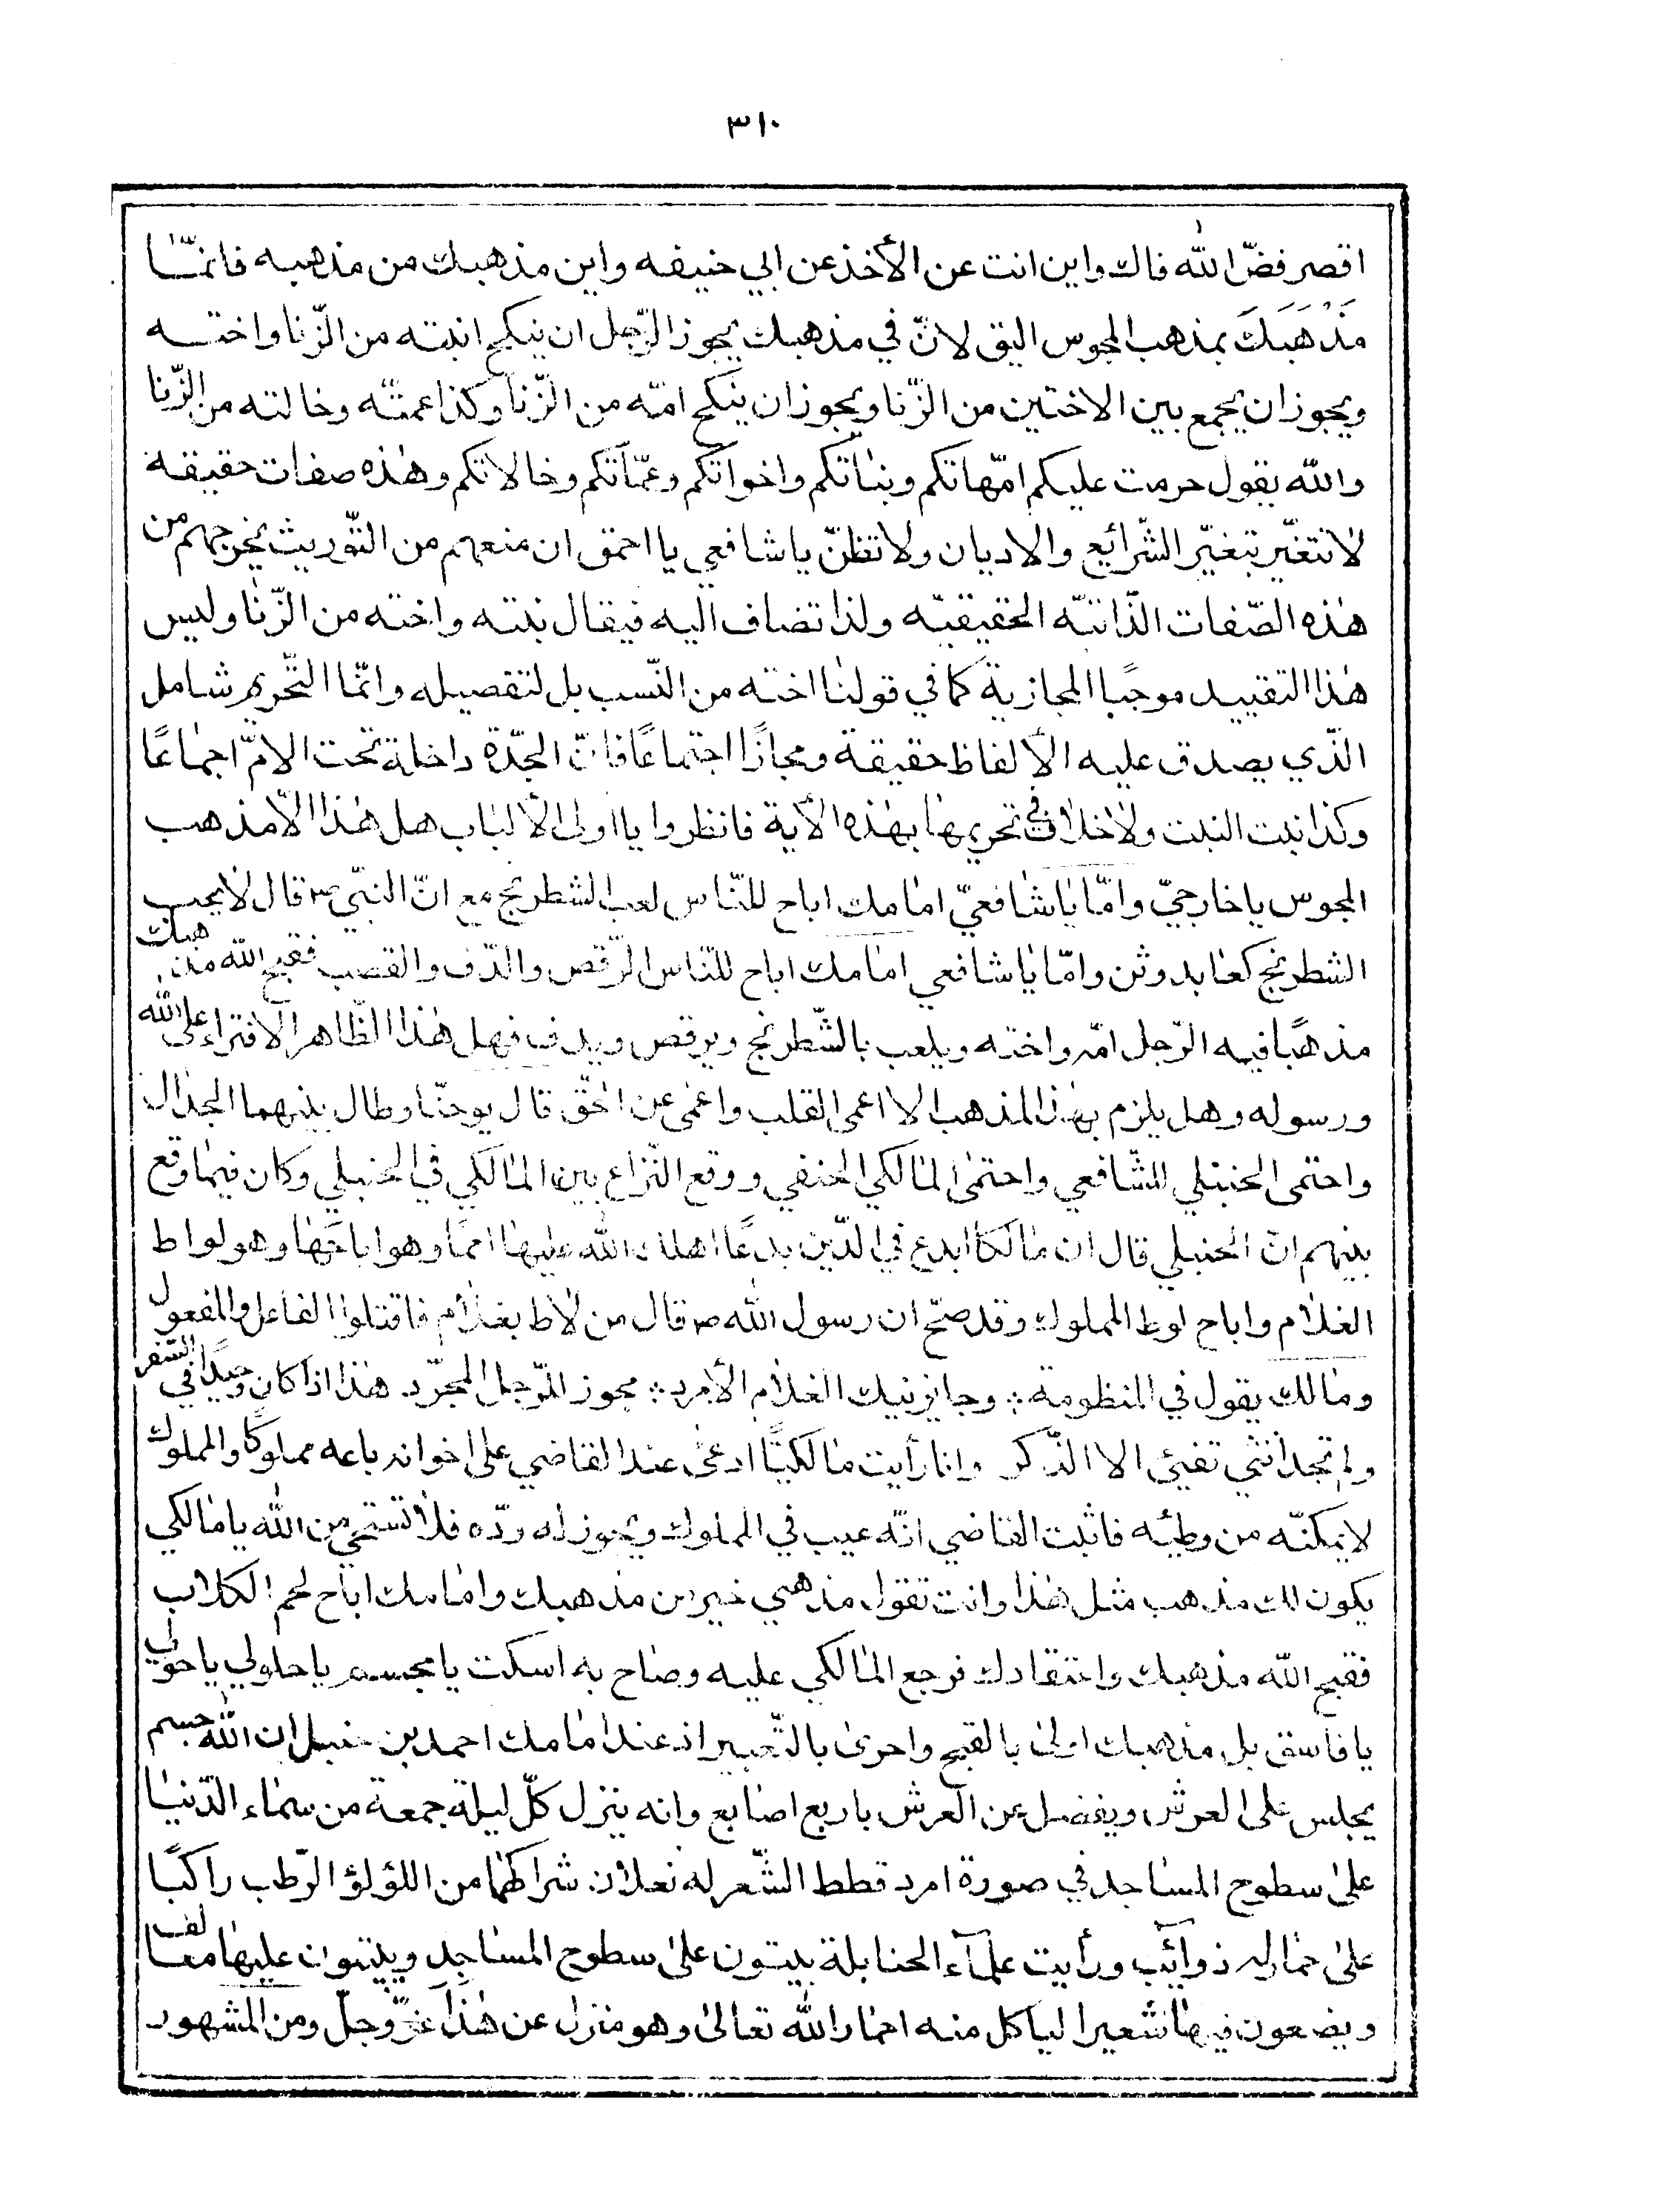 ٣١٠
اقصر فضّ الله فاك واين انت عن الأخذ عن ابي حنيفه واين مذهبك من مذهبه فانمّا
مَذْهَبَكَ بمذهب المجوس اليق لانّ في مذهبك يجوز الرّجل ان ينكح ابنته من الزّنا واختــه
ويجوز ان يجمع بين الاختين من الزّنا ويجوز ان ينكح امّه من الزّنا وكذا عمتّه وخالته من الزّنا
والله يقول حرمت عليكم امّهاتكم وبناتكم واخواتكم وعمّاتكم وخالاتكم وهذه صفات حقيقة
لا تتغيّر بتغيّر الشّرائع والاديان ولا تظنّ يا شافعي يا احمق ان منعهم من التّوريث يخرجهم من
هذه الصّفات الذّاتيّه الحقيقيّه ولذا تضاف اليه فيقال بنته واخته من الزّنا وليس
هذا التقييد موجبًا المجازية كما في قولنا اخته من النّسب بل لتفصيله وانّما التّحريم شامل
الّذي يصدق عليه الألفاظ حقيقة ومجازًا اجتماعًا فانّ الجدّة داخلة تحت الامّ اجماعًا
وكذا بنت البنت ولا خلاف في تحريمها بهذه الأية فانظروا يا اولى الألباب هل هذا الّا مذهب
المجوس يا خارجيّ وامّا يا شافعيّ امامك اباح للنّاس لعب الشطرنج مع انّ النبيّ ص قال لا يحب
الشطرنج كعابد وثن وامّا يا شافعي امامك اباح للنّاس الرّقص والدّف والقصب فقبح الله مذهبك
مذهبًا فيه الرّجل امّه واخته ويلعب بالشّطرنج ويرقص ويدف فهل هذا الظّاهر الافتراء على الله
ورسوله وهل يلزم بهذا المذهب الا اعمى القلب واعمى عن الحقّ قال يوحنّا وطال بينهما الجدال
واحتمى الحنبلي للشّافعي واحتمى المالكي الحنفي ووقع النّزاع بين المالكي في الحنبلي وكان فيما وقع
بينهم انّ الحنبلي قال ان مالكًا ابدع في الدّين بدعًا اهلك الله عليها امماً وهو اباحها وهو لواط
الغلام واباح لوط المملوك وقد صحّ ان رسول الله ص قال من لاط بغلام فاقتلوا الفاعل والمفعول
ومالك يقول في المنظومة ∴ وجايز نيك الغلام الأمرد ∴ مجوز للرّجل المجرّد هذا اذا كان وحيدًا في السّفر
ولم تجد انثى تفيئ الا الذّكر وانا رأيت مالكيّا ادعى عند القاضي على اخر انه باعه مملوكًا والمملوك
لا يمكنّه من وطيئه فاثبت القاضي انّه عيب في المملوك ويجوز له ردّه فلا تستحي من الله يا مالكي
يكون لك مذهب مثل هذا وانت تقول مذهبي خير من مذهبك وامامك اباح لحم الكلاب
فقبح الله مذهبك واعتقادك فرجع المالكي عليه وصاح به اسكت يا مجسم يا حلولي يا حولي
يا فاسق بل مذهبك اولى بالقبح واحرى بالتّعبير اذ عند امامك احمد بن حنبل ان الله جسم
يجلس على العرش ويفضل عن العرش باربع اصابع وانه ينزل كلّ ليلة جمعة من سماء الدّنيا
على سطوح المساجد في صورة امرد قطط الشّعر له نعلان شراكهما من اللؤلؤ الرّطب راكبًا
على حمار له ذوائب ورأيت علماء الحنابلة يبيتون على سطوح المساجد ويبنون عليها معالف
ويضعون فيها شعيرا لياكل منه احمار الله تعالى وهو منزل عن هذا عزّ وجلّ ومن المشهور